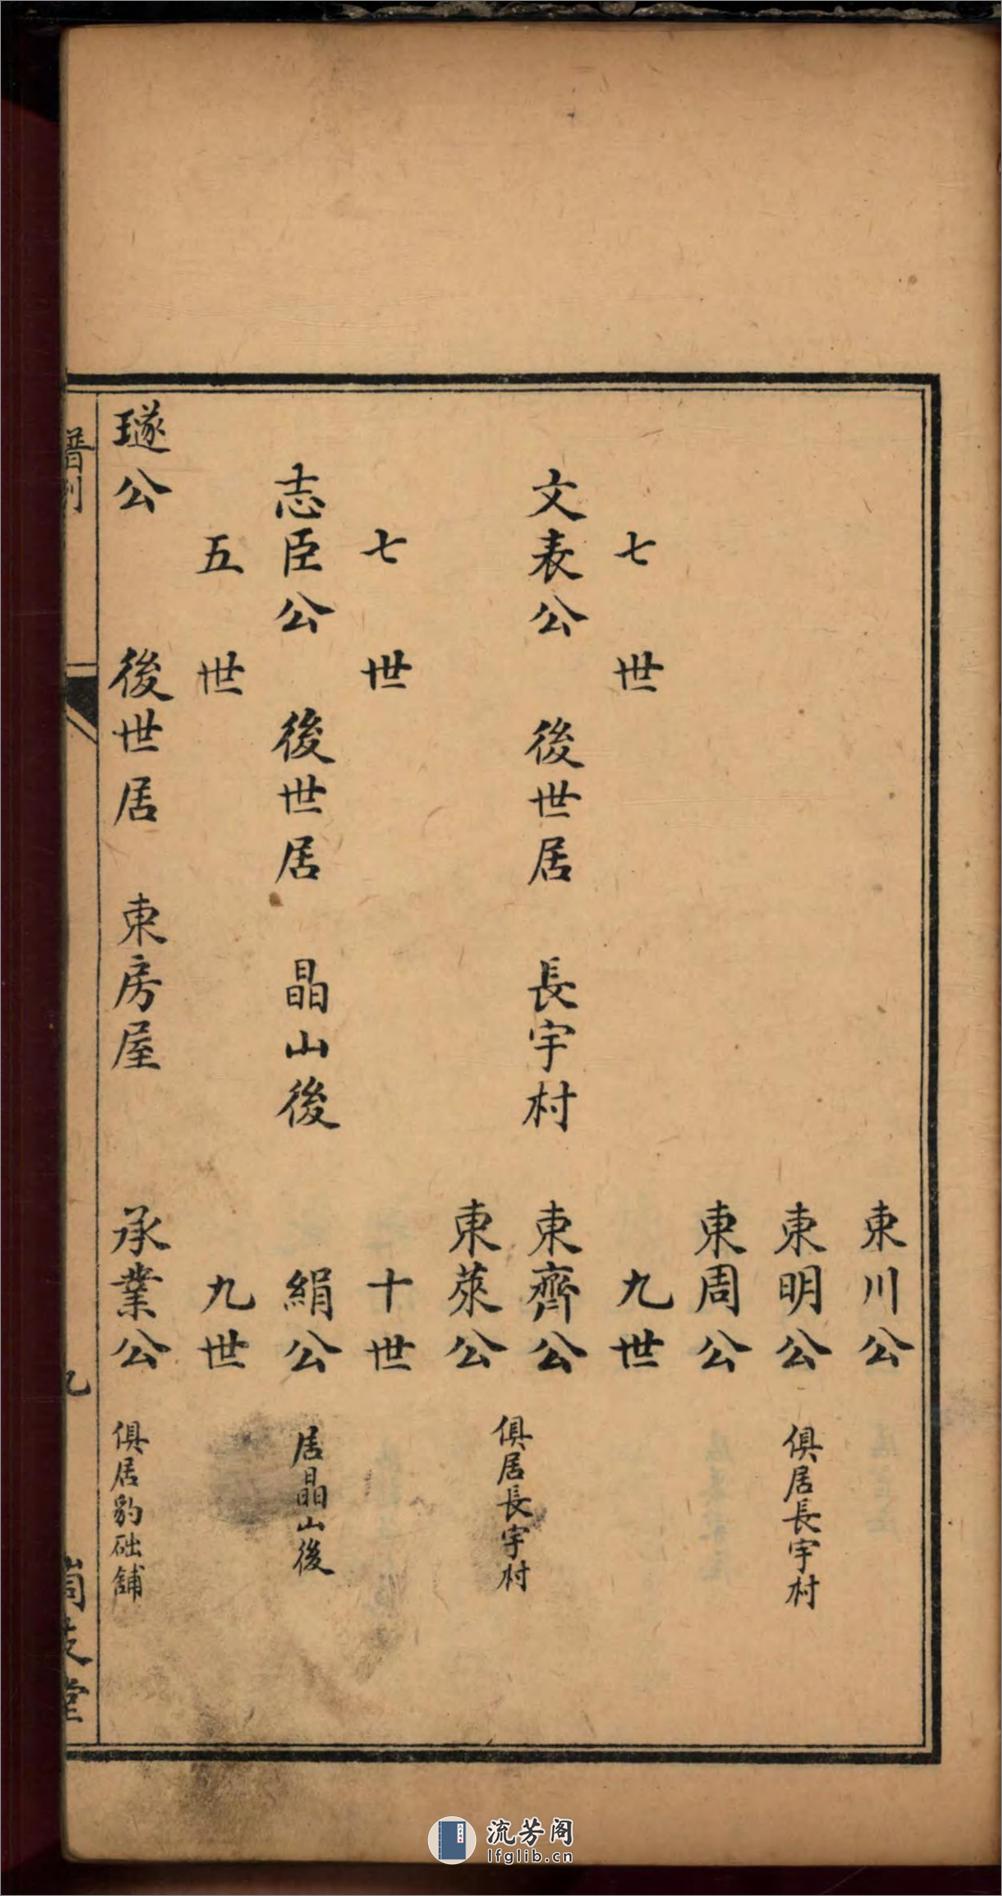 東川公
東明公 俱居長宇村
東周公
七世 九世
文表公 後世居 長宇村 東齊公
東萊公 俱居長宇村
七世 十世
志臣公 後世居 晶山後 絹公 居晶山後
五世 九世
璲公 後世居 東房屋 承業公 俱居豹础舖
譜
九
堂
流芳阁
lfglib.cn